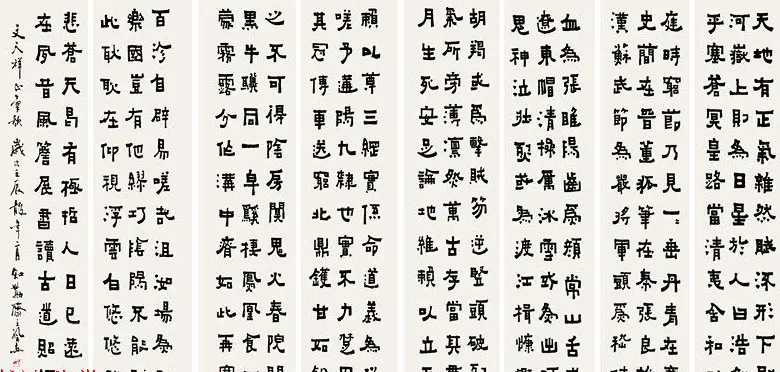 天地有正氣雜然賦流形下則
河嶽上則為日星於人曰浩
乎塞蒼冥皇路當清夷含和
庭時窮節乃見一一垂丹青在
史簡在晉董狐筆在秦張良
漢蘇武節為嚴將軍頭為嵇
血為張睢陽齒為顏常山舌
遼東帽清操厲冰雪或為出
鬼神泣壯烈或為渡江楫慷
胡羯或為擊賊笏逆豎頭破
氣所旁薄凜然萬古存當其
月生死安足論地維賴以立
賴以尊三綱實係命道義為
嗟予遘陽九隸也實不力楚
其冠傳車送窮北鼎鑊甘如
之不可得陰房闃鬼火春院閟
黑牛驥同一皂雞棲鳳凰食
蒙霧露分作溝中瘠如此再
百沴自辟易嗟哉沮洳場為
樂國豈有他繆巧陰陽不能
此耿耿在仰視浮雲白悠悠
悲蒼天曷有極哲人日已遠
在夙昔風簷展書讀古道照
文天祥正氣歌歲